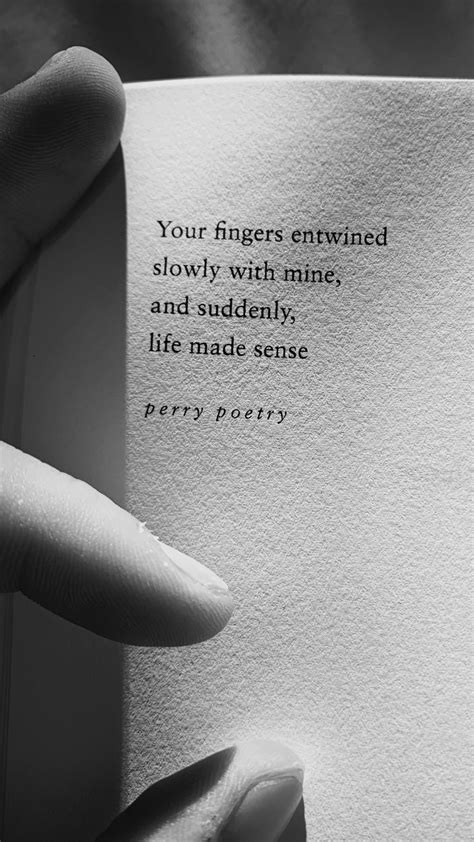 Your fingers entwined
slowly with mine,
and suddenly,
life made sense
perry poetry